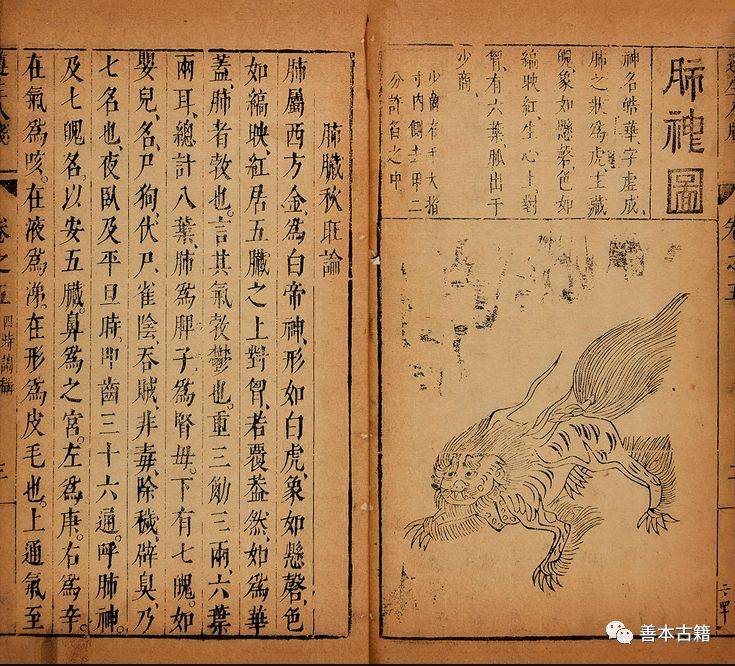 遵生八牋 卷之五 二
肺神圖
神名皓華、字虛成、
肺之狀為虎、主藏
魄、象如懸磬、色如
縞映紅、生心上、對
胷、有六葉、脉出于
少商、
少商在手大指
寸內側去甲二
分許陷之中
肺臟秋旺論
肺屬西方金、為白帝神、形如白虎、象如懸磬、色
如縞映紅、居五臟之上、對胷、若覆葢然、如為華
葢、肺者敦也。言其氣敦鬱也。重三觔三兩、六葉
兩耳、總計八葉、肺為脾子、為腎毋。下有七魄、如
嬰兒、名尸狗、伏尸、雀陰、吞賊、非毒、除穢、辟臭、乃
七名也、夜臥及平旦時、叩齒三十六通。呼肺神
及七魄名。以安五臟。鼻為之宮。左為庚。右為辛。
在氣為咳。在液為涕。在形為皮毛也。上通氣至
遵生八牋 卷之五 四時調攝 三
善本古籍